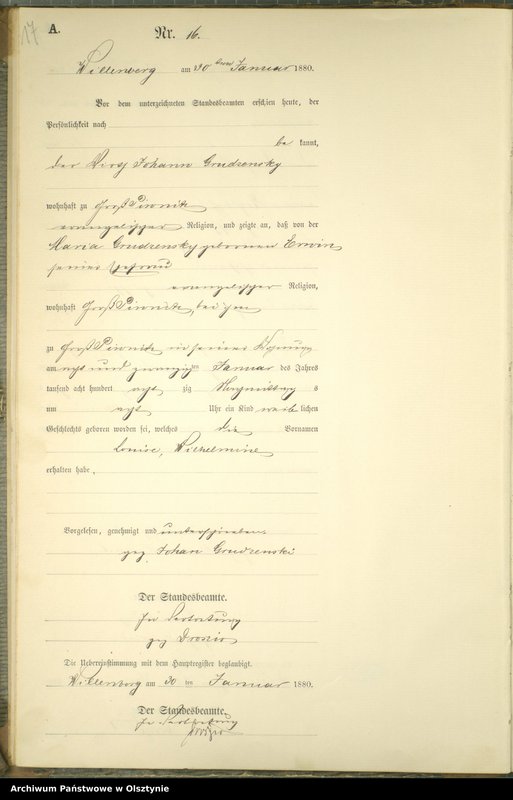 17
A.
Nr. 16.
Willenberg am 30 ten Januar 1880.
Vor dem unterzeichneten Standesbeamten erschien heute, der
Persönlichkeit nach
be kannt,
der Wirth Johann Grudzensky
wohnhaft zu Groß Piwnitz
evangelischer Religion, und zeigte an, daß von der
Maria Grudzensky geborenen Erwin
seiner Ehefrau
evangelischer Religion,
wohnhaft Groß Piwnitz, bei ihm
zu Groß Piwnitz in seiner Wohnung
am acht und zwanzig ten Januar des Jahres
tausend acht hundert acht zig Vormittag s
um acht Uhr ein Kind weib lichen
Geschlechts geboren worden sei, welches die Vornamen
Louise, Wilhelmine
erhalten habe.
Vorgelesen, genehmigt und unterschrieben
gez. Johan Grudzenski
Der Standesbeamte.
In Vertretung
gez
Die Uebereinstimmung mit dem Hauptregister beglaubigt.
Willenberg am 30 ten Januar 1880.
Der Standesbeamte.
In Vertretung
Archiwum Państwowe w Olsztynie